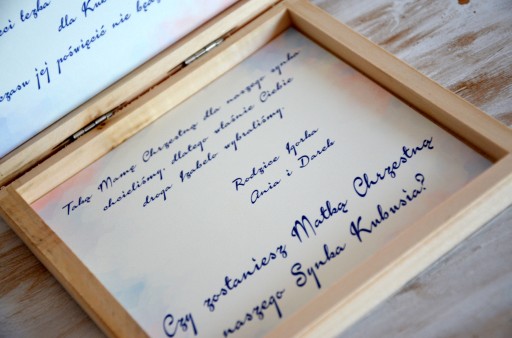 eci łezka
dla Kub
czasu jej poświęcić nie będz
Taką Mamę Chrzestną dla naszego synka
chcieliśmy, dlatego właśnie Ciebie
droga Izabelo wybraliśmy.
Rodzice Igorka
Ania i Darek
Czy zostaniesz Matką Chrzestną
naszego Synka Kubusia?